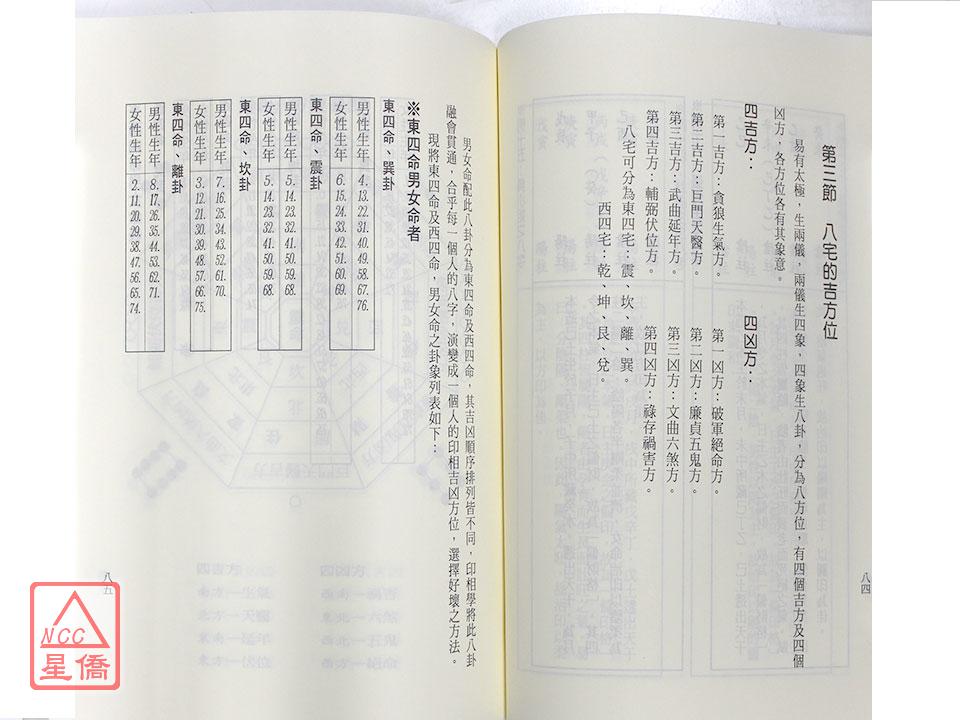 第三節　八宅的吉方位
易有太極，生兩儀，兩儀生四象，四象生八卦，分為八方位，有四個吉方及四個
凶方，各方位各有其象意。
四吉方：
四凶方：
第一吉方：貪狼生氣方。
第一凶方：破軍絕命方。
第二吉方：巨門天醫方。
第二凶方：廉貞五鬼方。
第三吉方：武曲延年方。
第三凶方：文曲六煞方。
第四吉方：輔弼伏位方。
第四凶方：祿存禍害方。
八宅可分為東四宅：震、坎、離、巽。
西四宅：乾、坤、艮、兌。
八四
男女命配此八卦分為東四命及西四命，其吉凶順序排列皆不同，印相學將此八卦
融會貫通，合乎每一個人的八字，演變成一個人的印相吉凶方位，選擇好壞之方法。
現將東四命及西四命，男女命之卦象列表如下：
※東四命男女命者
東四命、巽卦
男性生年 4. 13. 22. 31. 40. 49. 58. 67. 76.
女性生年 6. 15. 24. 33. 42. 51. 60. 69.
東四命、震卦
男性生年 5. 14. 23. 32. 41. 50. 59. 68.
女性生年 5. 14. 23. 32. 41. 50. 59. 68.
東四命、坎卦
男性生年 7. 16. 25. 34. 43. 52. 61. 70.
女性生年 3. 12. 21. 30. 39. 48. 57. 66. 75.
東四命、離卦
男性生年 8. 17. 26. 35. 44. 53. 62. 71.
女性生年 2. 11. 20. 29. 38. 47. 56. 65. 74.
八五
NCC
星僑